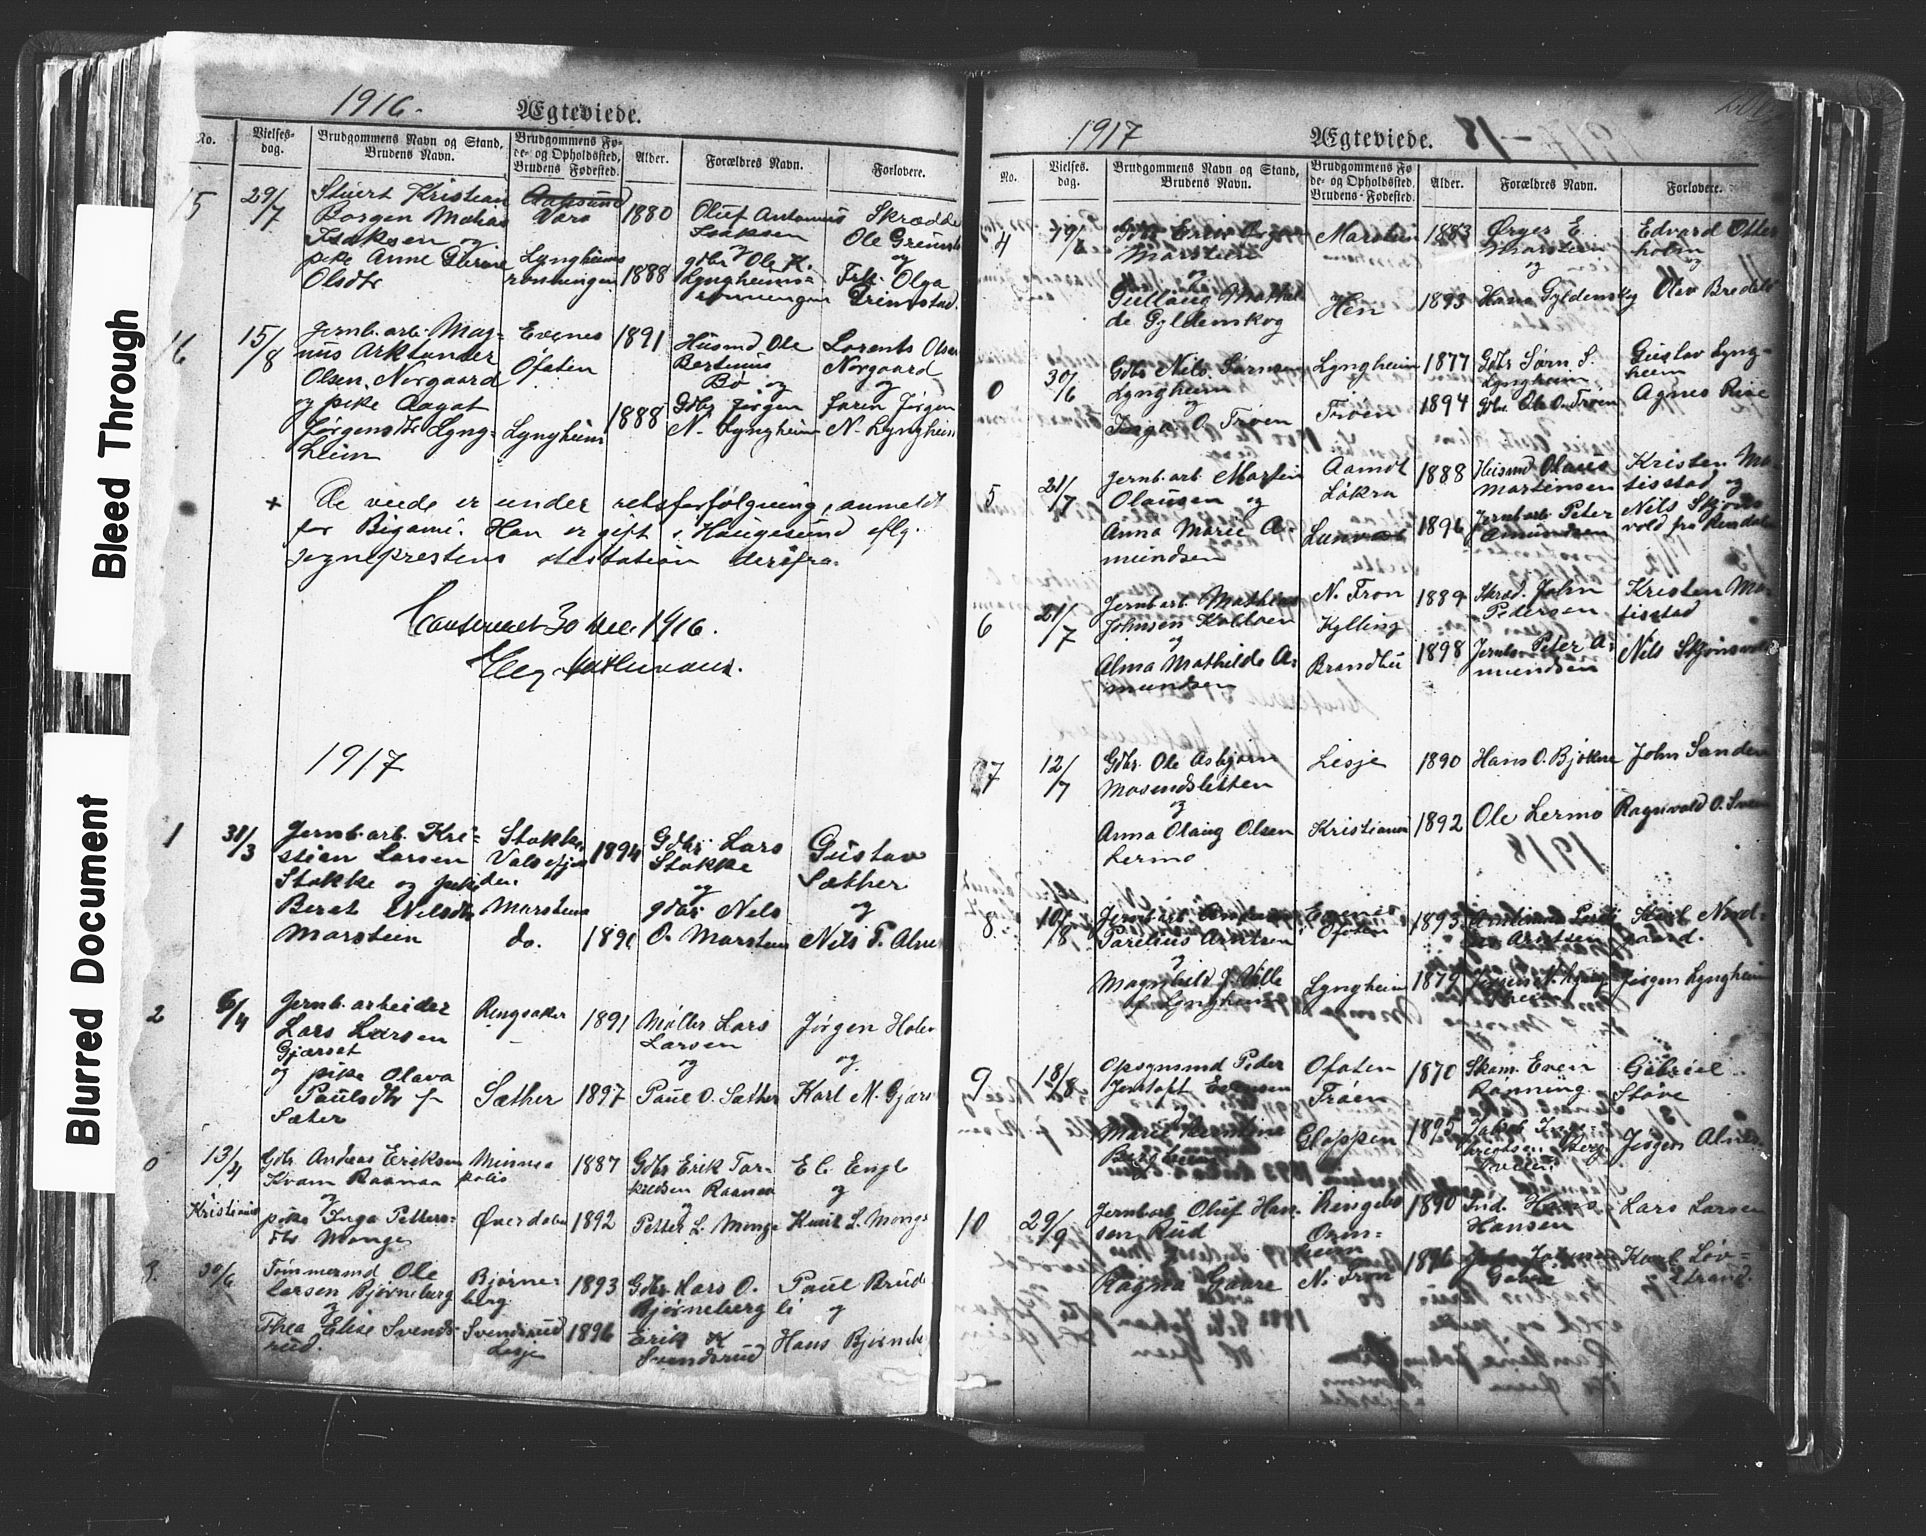 Bleed Through
Blurred Document
1916.
Ægteviede.
No.
Vielses-
dag.
Brudgommens Navn og Stand,
Brudens Navn.
Brudgommens Fø-
de- og Opholdssted,
Brudens Fødested.
Alder.
Forældres Navn.
Forlovere.
15
29/7
Stuert Kristian
Borgen Mathias
Isaksen og
pike Anne
Olsdtr
Vors
Lyngheims
rønningen
1880
1888
Oluf Antonius
Isaksen
og
gdbr Ole K.
Lyngheims-
rønningen
Skrædder
Ole Grimst
og
Frk. Olga
Grimstad.
16
15/8
Jernb.arb. Mag-
nus Arktander
Olsen Norgaard
og pike Aagot
Jørgensdtr Lyng-
heim
Evenes
Ofoten
Lyngheim
1891
1888
Husmd Ole
Bertinus
Bø og
Gdbr Jørgen
N. Lyngheim
Lorents Olsen
Norgaard
og
faren Jørgen
N. Lyngheim
+ De viede er under retsforfølgning, anmeldt
for Bigami. Han er gift i Haugesund eflg.
sogneprestens attestation derfra.
Confereret 30 Dec. 1916.
1917
1
31/3
Jernb.arb. Kri-
stian Larsen
Stokke og pike
Beret Nilsdtr
Marstein
Stokke
Valsefjor
den.
Marstein
do.
1894
1891
Gdbr Lars
Stokke
og
gdbr Nils
O. Marstein
Gustav
Sæther
og
Nils P. Alnes
2
6/4
Jernb.arbeider
Lars Larsen
Gjørset
og pike Olava
Paulsdtr f
Sæter
Ringsaker
Sæther
1891
1897
Møller Lars
Larsen
og
Paul O. Sæther
Jørgen Holm
og
Karl M. Gjørs
0
13/4
Kristiania
Gdbr. Andreas Eriksen
Kvam Raanaa
og
pike Inga Petters-
dtr Monge
Minnea
polis
Øverdalen
1887
1892
Gdbr Erik Tor-
kildsen Raanaa
og
Petter L. Monge
E. C. Engl
og
Knut L. Monge
3.
30/6
Tømmermd Ole
Larsen Bjørneberg
og
Thea Elise Svends-
rud.
Bjørne-
berg
Svendsrud
Lesje
1893
1896
Gdbr Lars O.
Bjørneberg
Erik K
Svendsrud
Paul Brude
li og
Hans Bjørneb
1917 - 18
Ægteviede.
No.
Vielses-
dag.
Brudgommens Navn og Stand,
Brudens Navn.
Brudgommens Fø-
de- og Opholdssted,
Brudens Fødested.
Alder.
Forældres Navn.
Forlovere.
4
19/6
Marstein
og
Gullaug Mathil
de Gyldenskog
Marstein
Hen
1883
1893
Ørger E.
Marstein
og
Hans Gyldenskog
Edvard Otter
holm
og
Olav Bredeli
0
30/6
Gdbr Nils Sørnsen
Lyngheim
og
Inga O. Troen
Lyngheim
Troen
1877
1894
Gdbr Sørn S.
Lyngheim
Gdbr. Ole O. Troen
Gustav Lyng-
heim
Agnes Rise
5
21/7
Jernb.arb. Martin
Olausen og
Anna Marie A-
mundsen
Aamdt
Løkra
1888
1896
Husmd Olaus
Martinsen
Jernb.arb. Peter
Amundsen
Kristen Ma-
tisstad og
Nils Skjøns
vold fra Rendalen
6
21/7
Jernb.arb. Mathias
Johnsen Kolloen
og
Alma Mathilde A-
mundsen
N. Fron
Kylling
Brandbu
1889
1898
Skræd. John
Pedersen
Peter A-
mundsen
Kristen Ma-
tisstad
Nils Skjønsvold
7
12/7
Gdbr. Ole Asbjørn
Mosendsletten
og
Anna Olaug Olsen
Lermo
Lesje
Kristiania
1890
1892
Hans O. Bjøkne
Ole Lermo
John Sanden
Ragnvald O. Svein
8
10/8
Jernb.arb.
Parelius Arntsen
og
Magnhild J. Ville
af Lyngheim
Evenes
Ofoten
Lyngheim
1893
1879
Arntsen
Karl Nord-
gaard.
Jørgen Lyngheim
9
18/8
Opsynsmd Peder
Jentoft Evensen
og
Marie
Ofoten
Troen
Gloppen
1870
1895
Skom. Even
Rønning
Gabriel
Støve
Jørgen Alnes
10
29/9
Jernb.arb Oluf Han
sen Rud
Ragna Gaare
Ringebu
Orm-
heim
N. Fron
1890
1896
Ind. Hans
Hansen
Gaare
Lars Larsen
Karl Løv-
strand.